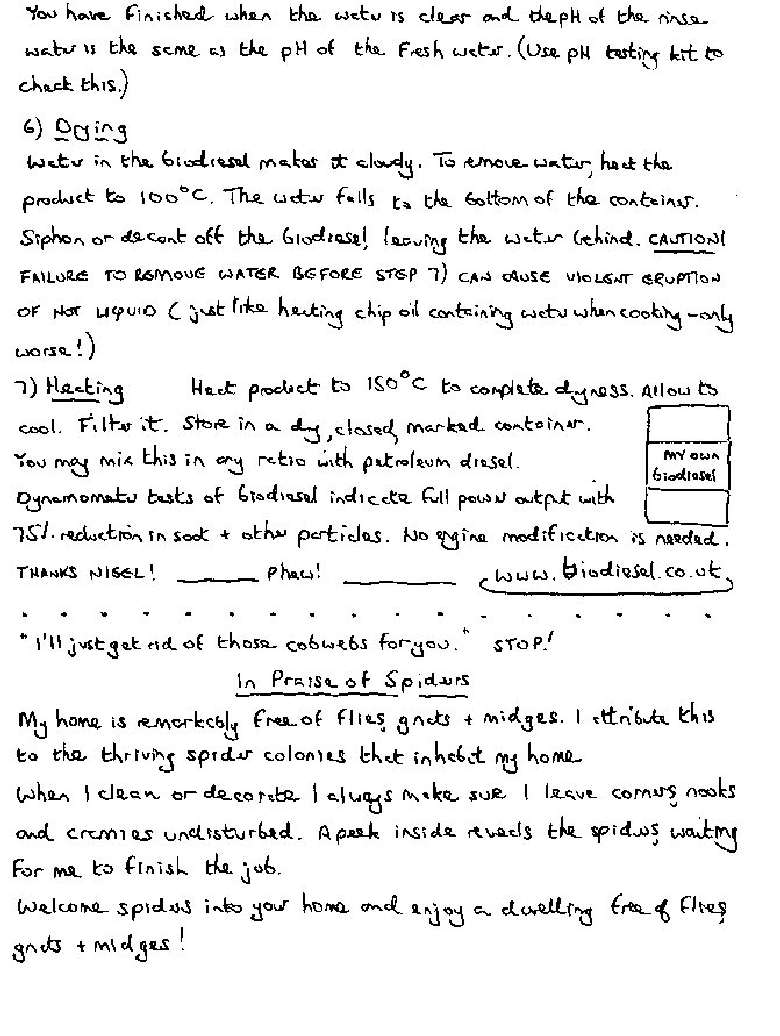 You have finished when the water is clear and the pH of the rinse
water is the same as the pH of the fresh water. (Use pH testing kit to
check this.)
6) Drying
Water in the biodiesel makes it cloudy. To remove water, heat the
product to 100°C. The water falls to the bottom of the container.
Siphon or decant off the biodiesel leaving the water behind. CAUTION!
FAILURE TO REMOVE WATER BEFORE STEP 7) CAN CAUSE VIOLENT ERUPTION
OF HOT LIQUID (just like heating chip oil containing water when cooking - only
worse!)
7) Heating Heat product to 150°C to complete dryness. Allow to
cool. Filter it. Store in a dry, closed, marked container.
You may mix this in any ratio with petroleum diesel.
My own
biodiesel
Dynamometer tests of biodiesel indicate full power output with
75% reduction in soot + other particles. No engine modification is needed.
THANKS NIGEL! Phew! www.biodiesel.co.uk
"I'll just get rid of those cobwebs for you." STOP!
In Praise of Spiders
My home is remarkably free of flies, gnats + midges. I attribute this
to the thriving spider colonies that inhabit my home
When I clean or decorate I always make sure I leave corners, nooks
and crannies undisturbed. A peek inside reveals the spiders, waiting
for me to finish the job.
Welcome spiders into your home and enjoy a dwelling free of flies,
gnats + midges!